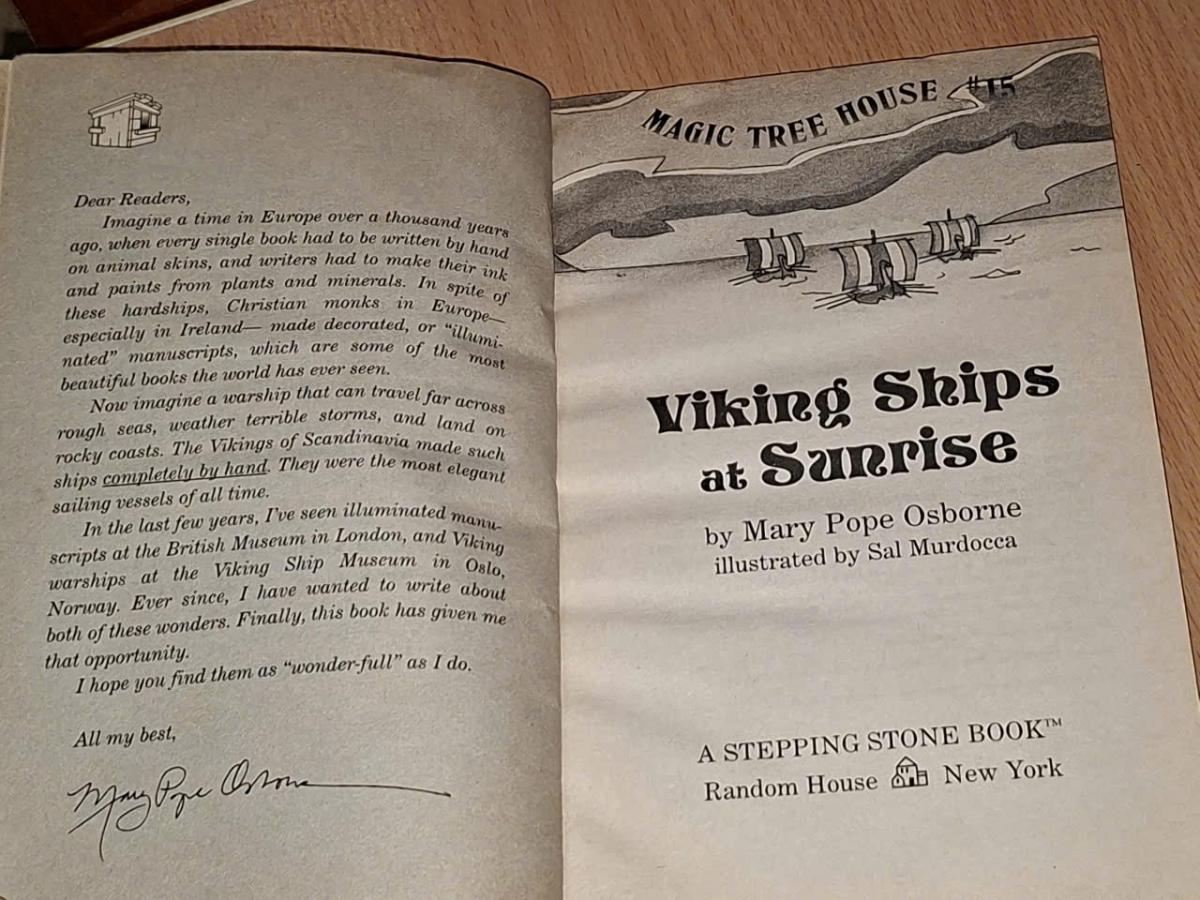 Dear Readers,
Imagine a time in Europe over a thousand years
ago, when every single book had to be written by hand
on animal skins, and writers had to make their ink
and paints from plants and minerals. In spite of
these hardships, Christian monks in Europe—
especially in Ireland— made decorated, or “illumi-
nated” manuscripts, which are some of the most
beautiful books the world has ever seen.
Now imagine a warship that can travel far across
rough seas, weather terrible storms, and land on
rocky coasts. The Vikings of Scandinavia made such
ships completely by hand. They were the most elegant
sailing vessels of all time.
In the last few years, I’ve seen illuminated manu-
scripts at the British Museum in London, and Viking
warships at the Viking Ship Museum in Oslo,
Norway. Ever since, I have wanted to write about
both of these wonders. Finally, this book has given me
that opportunity.
I hope you find them as “wonder-full” as I do.
All my best,
Mary Pope Osborne
MAGIC TREE HOUSE #15
Viking Ships
at Sunrise
by Mary Pope Osborne
illustrated by Sal Murdocca
A STEPPING STONE BOOK™
Random House New York